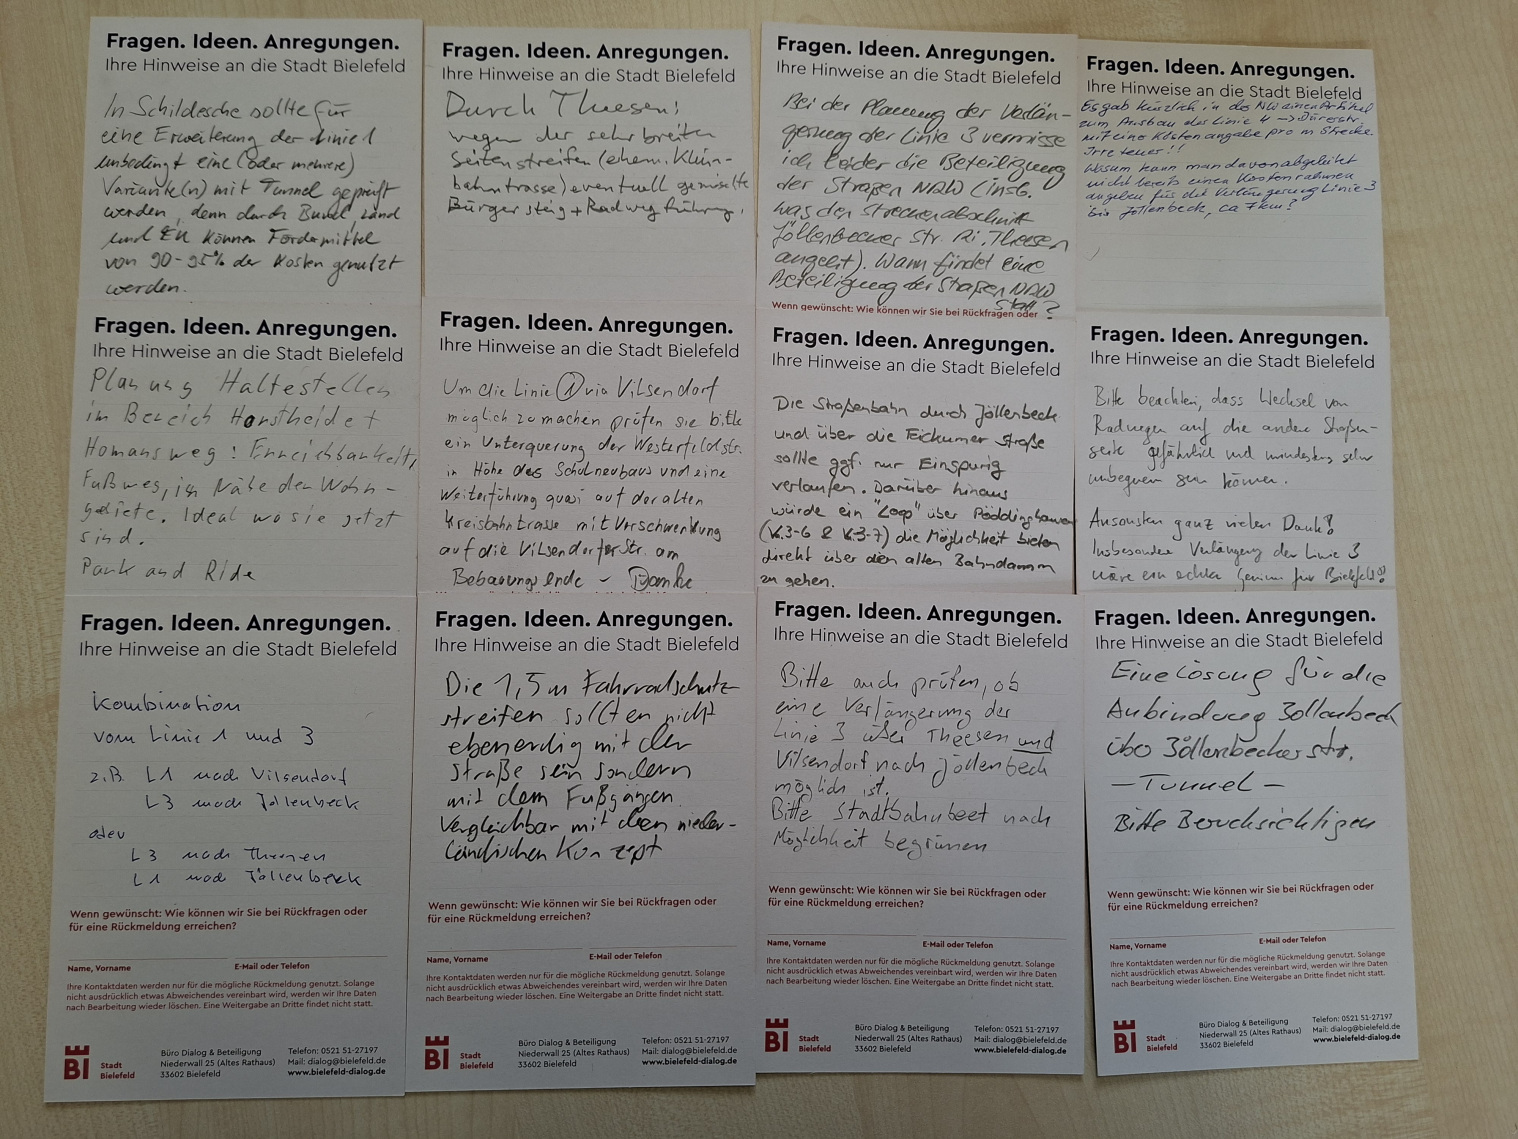 Fragen. Ideen. Anregungen.
Ihre Hinweise an die Stadt Bielefeld
In Schildesche sollte für
eine Erweiterung der Linie 1
unbedingt eine (oder mehrere)
Variante(n) mit Tunnel geprüft
werden, denn durch Bund, Land
und EU können Fördermittel
von 90-95% der Kosten genutzt
werden.
Fragen. Ideen. Anregungen.
Ihre Hinweise an die Stadt Bielefeld
Durch Theesen:
wegen der sehr breiten
Seitenstreifen (ehem. Klein-
bahntrasse) eventuell gemischte
Bürgersteig + Radwegführung.
Fragen. Ideen. Anregungen.
Ihre Hinweise an die Stadt Bielefeld
Bei der Planung der Verlän-
gerung der Linie 3 vermisse
ich leider die Beteiligung
der Straßen NRW (insb.
was den Streckenabschnitt
Jöllenbecker Str. Ri. Theesen
angeht). Wann findet eine
Beteiligung der Straßen NRW
statt?
Wenn gewünscht: Wie können wir Sie bei Rückfragen oder
Fragen. Ideen. Anregungen.
Ihre Hinweise an die Stadt Bielefeld
Es gab kürzlich in der NW einen Artikel
zum Ausbau der Linie 4 → Dürerstr.
mit einer Kostenangabe pro m Strecke.
Irre teuer!!
Warum kann man davon abgeleitet
nicht bereits einen Kostenrahmen
angeben für die Verlängerung Linie 3
bis Jöllenbeck, ca 7km?
Fragen. Ideen. Anregungen.
Ihre Hinweise an die Stadt Bielefeld
Planung Haltestellen
im Bereich Horstheide +
Homannsweg: Erreichbarkeit,
Fußweg, in Nähe der Wohn-
gebiete. Ideal wo sie jetzt
sind.
Park and Ride
Fragen. Ideen. Anregungen.
Ihre Hinweise an die Stadt Bielefeld
Um die Linie 1 via Vilsendorf
möglich zu machen prüfen sie bitte
ein Unterquerung der Westerfeldstr.
in Höhe des Schulneubaus und eine
Weiterführung quasi auf der alten
Kreisbahntrasse mit Verschwenkung
auf die Vilsendorfer Str. am
Bebauungsende – Danke
Fragen. Ideen. Anregungen.
Ihre Hinweise an die Stadt Bielefeld
Die Straßenbahn durch Jöllenbeck
und über die Eickumer Straße
sollte ggf. nur Einspurig
verlaufen. Darüber hinaus
würde ein "Loop" über Pödinghausen
(V.3-6 & V.3-7) die Möglichkeit bieten
direkt über den alten Bahndamm
zu gehen.
Fragen. Ideen. Anregungen.
Ihre Hinweise an die Stadt Bielefeld
Bitte beachten, dass Wechsel von
Radwegen auf die andere Straßen-
seite gefährlich und mindestens sehr
unbequem sein können.
Ansonsten ganz vielen Dank!
Insbesondere Verlängerung der Linie 3
wäre ein echter Gewinn für Bielefeld!
Fragen. Ideen. Anregungen.
Ihre Hinweise an die Stadt Bielefeld
Kombination
vom Linie 1 und 3
z.B. L1 nach Vilsendorf
L3 nach Jöllenbeck
oder
L3 nach Theesen
L1 nach Jöllenbeck
Wenn gewünscht: Wie können wir Sie bei Rückfragen oder
für eine Rückmeldung erreichen?
Name, Vorname
E-Mail oder Telefon
Ihre Kontaktdaten werden nur für die mögliche Rückmeldung genutzt. Solange
nicht ausdrücklich etwas Abweichendes vereinbart wird, werden wir Ihre Daten
nach Bearbeitung wieder löschen. Eine Weitergabe an Dritte findet nicht statt.
BI
Stadt
Bielefeld
Büro Dialog & Beteiligung
Niederwall 25 (Altes Rathaus)
33602 Bielefeld
Telefon: 0521 51-27197
Mail: dialog@bielefeld.de
www.bielefeld-dialog.de
Fragen. Ideen. Anregungen.
Ihre Hinweise an die Stadt Bielefeld
Die 1,5m Fahrradschutz-
streifen sollten nicht
ebenerdig mit der
Straße sein sondern
mit dem Fußgänger.
Vergleichbar mit dem nieder-
ländischen Konzept
Wenn gewünscht: Wie können wir Sie bei Rückfragen oder
für eine Rückmeldung erreichen?
Name, Vorname
E-Mail oder Telefon
Ihre Kontaktdaten werden nur für die mögliche Rückmeldung genutzt. Solange
nicht ausdrücklich etwas Abweichendes vereinbart wird, werden wir Ihre Daten
nach Bearbeitung wieder löschen. Eine Weitergabe an Dritte findet nicht statt.
BI
Stadt
Bielefeld
Büro Dialog & Beteiligung
Niederwall 25 (Altes Rathaus)
33602 Bielefeld
Telefon: 0521 51-27197
Mail: dialog@bielefeld.de
www.bielefeld-dialog.de
Fragen. Ideen. Anregungen.
Ihre Hinweise an die Stadt Bielefeld
Bitte auch prüfen, ob
eine Verlängerung der
Linie 3 über Theesen und
Vilsendorf nach Jöllenbeck
möglich ist.
Bitte Stadtbahnbeet nach
Möglichkeit begrünen
Wenn gewünscht: Wie können wir Sie bei Rückfragen oder
für eine Rückmeldung erreichen?
Name, Vorname
E-Mail oder Telefon
Ihre Kontaktdaten werden nur für die mögliche Rückmeldung genutzt. Solange
nicht ausdrücklich etwas Abweichendes vereinbart wird, werden wir Ihre Daten
nach Bearbeitung wieder löschen. Eine Weitergabe an Dritte findet nicht statt.
BI
Stadt
Bielefeld
Büro Dialog & Beteiligung
Niederwall 25 (Altes Rathaus)
33602 Bielefeld
Telefon: 0521 51-27197
Mail: dialog@bielefeld.de
www.bielefeld-dialog.de
Fragen. Ideen. Anregungen.
Ihre Hinweise an die Stadt Bielefeld
Eine Lösung für die
Anbindung Jöllenbeck
über Jöllenbecker str.
– Tunnel –
Bitte Berücksichtigen
Wenn gewünscht: Wie können wir Sie bei Rückfragen oder
für eine Rückmeldung erreichen?
Name, Vorname
E-Mail oder Telefon
Ihre Kontaktdaten werden nur für die mögliche Rückmeldung genutzt. Solange
nicht ausdrücklich etwas Abweichendes vereinbart wird, werden wir Ihre Daten
nach Bearbeitung wieder löschen. Eine Weitergabe an Dritte findet nicht statt.
BI
Stadt
Bielefeld
Büro Dialog & Beteiligung
Niederwall 25 (Altes Rathaus)
33602 Bielefeld
Telefon: 0521 51-27197
Mail: dialog@bielefeld.de
www.bielefeld-dialog.de